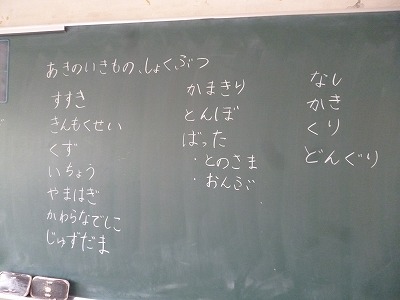 あきのいきもの、しょくぶつ
すすき
きんもくせい
くず
いちょう
やまはぎ
かわらなでしこ
じゅずだま
かまきり
とんぼ
ばった
・とのさま
・おんぶ
なし
かき
くり
どんぐり